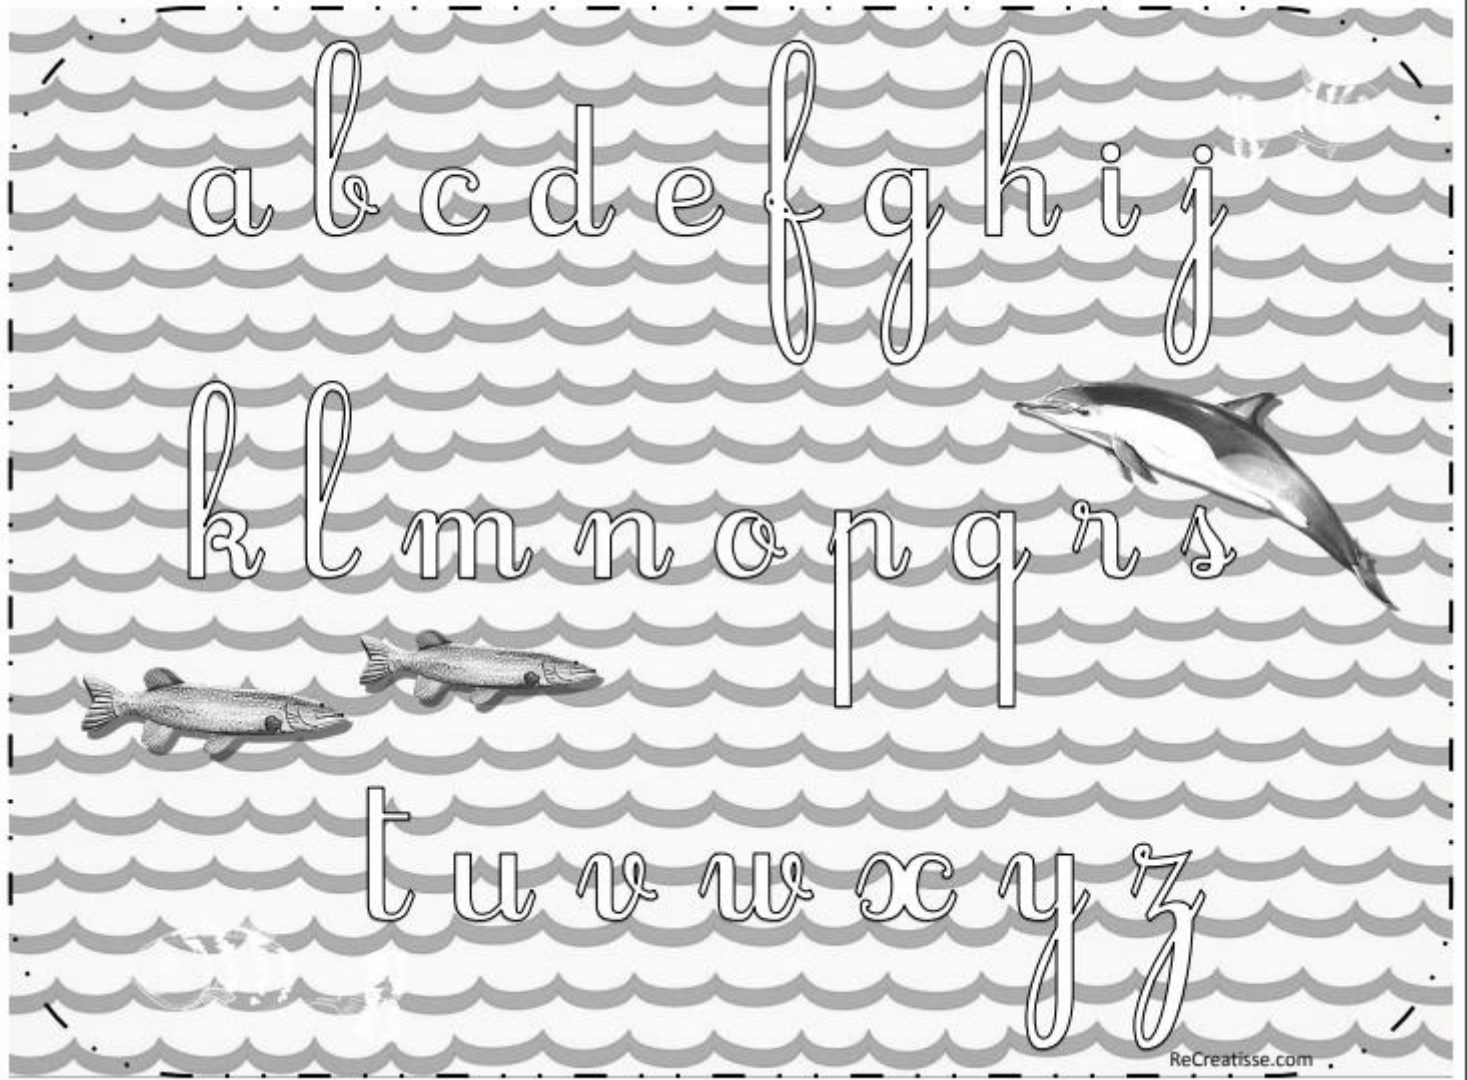 a b c d e f g h i j
k l m n o p q r s
t u v w x y z
ReCreatisse.com